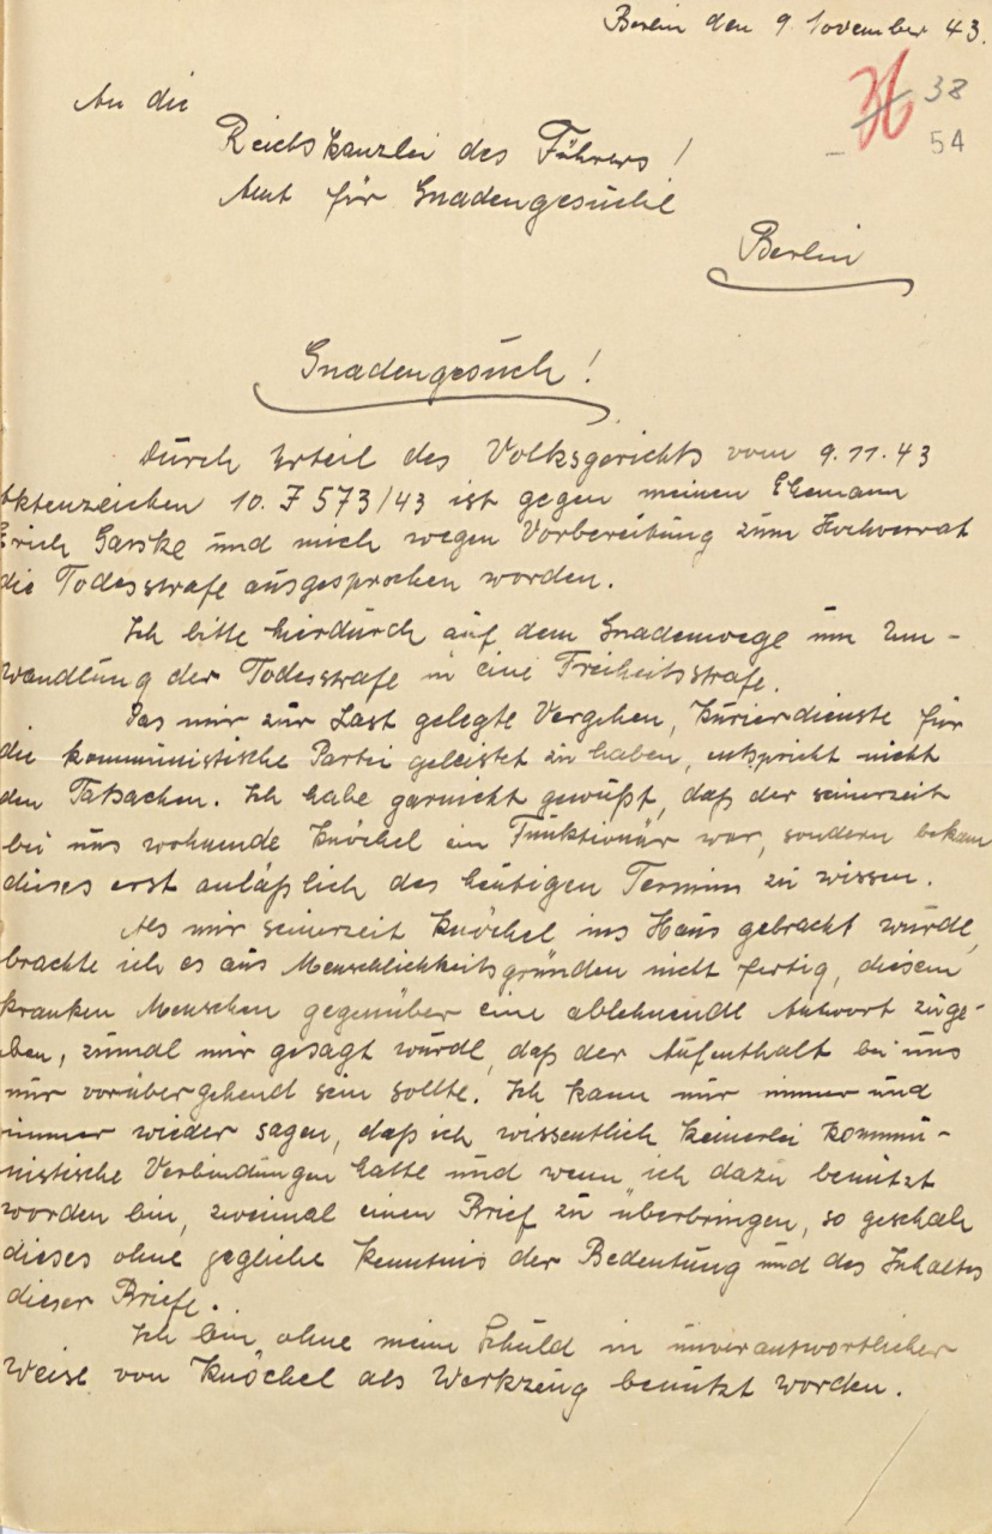 Berlin den 9. November 43.
38
54
An die
Reichskanzlei des Führers!
Amt für Gnadengesuche
Berlin
Gnadengesuch!
Durch Urteil des Volksgerichts vom 9.11.43
Aktenzeichen 10. J 573/43 ist gegen meinen Ehemann
Erich Garske und mich wegen Vorbereitung zum Hochverrat
die Todesstrafe ausgesprochen worden.
Ich bitte hierdurch auf dem Gnadenwege um Um-
wandlung der Todesstrafe in eine Freiheitsstrafe.
Das mir zur Last gelegte Vergehen, Kurierdienste für
die kommunistische Partei geleistet zu haben, entspricht nicht
den Tatsachen. Ich habe garnicht gewußt, daß der seinerzeit
bei uns wohnende Knöchel ein Funktionär war, sondern bekam
dieses erst anläßlich des heutigen Termins zu wissen.
Als mir seinerzeit Knöchel ins Haus gebracht wurde,
brachte ich es aus Menschlichkeitsgründen nicht fertig, diesem
kranken Menschen gegenüber eine ablehnende Antwort zuge-
ben, zumal mir gesagt wurde, daß der Aufenthalt bei uns
nur vorübergehend sein sollte. Ich kann nur immer und
immer wieder sagen, daß ich wissentlich keinerlei kommu-
nistische Verbindungen hatte und wenn ich dazu benutzt
worden bin, zweimal einen Brief zu überbringen, so geschah
dieses ohne jegliche Kenntnis der Bedeutung und des Inhaltes
dieser Briefe.
Ich bin ohne meine Schuld in unverantwortlicher
Weise von Knöchel als Werkzeug benutzt worden.